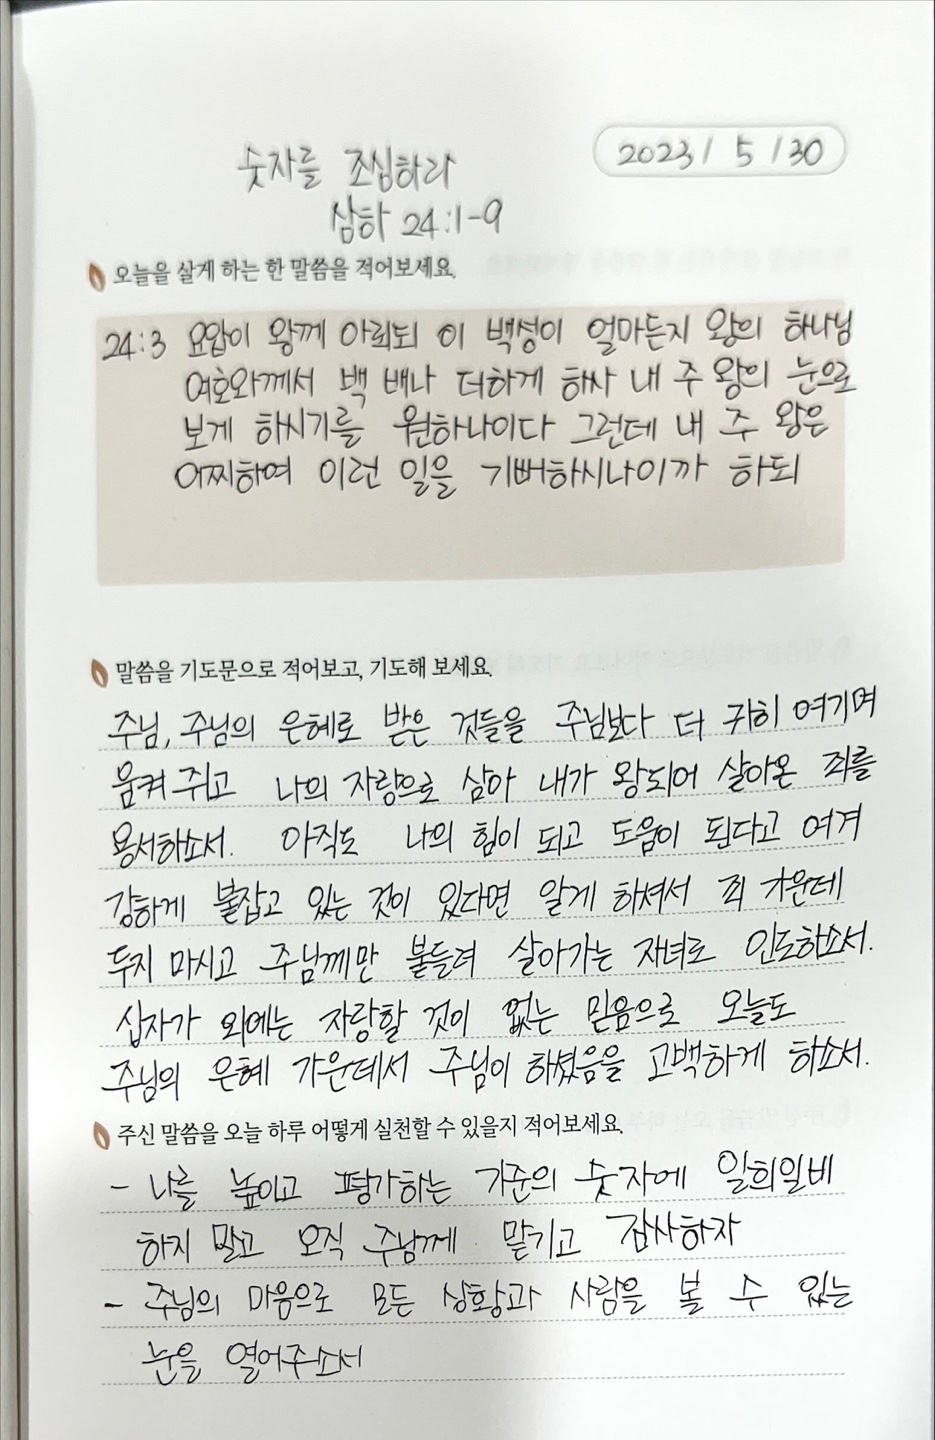 2023 / 5 / 30
숫자를 조심하라
삼하 24:1-9
오늘을 살게 하는 한 말씀을 적어보세요.
24:3 요압이 왕께 아뢰되 이 백성이 얼마든지 왕의 하나님
여호와께서 백 배나 더하게 하사 내 주 왕의 눈으로
보게 하시기를 원하나이다 그런데 내 주 왕은
어찌하여 이런 일을 기뻐하시나이까 하되
말씀을 기도문으로 적어보고, 기도해 보세요.
주님, 주님의 은혜로 받은 것들을 주님보다 더 귀히 여기며
움켜쥐고 나의 자랑으로 삼아 내가 왕되어 살아온 죄를
용서하소서. 아직도 나의 힘이 되고 도움이 된다고 여겨
강하게 붙잡고 있는 것이 있다면 알게 하셔서 죄 가운데
두지 마시고 주님께만 붙들려 살아가는 자녀로 인도하소서.
십자가 외에는 자랑할 것이 없는 믿음으로 오늘도
주님의 은혜 가운데서 주님이 하셨음을 고백하게 하소서.
주신 말씀을 오늘 하루 어떻게 실천할 수 있을지 적어보세요.
- 나를 높이고 평가하는 기준의 숫자에 일희일비
하지 말고 오직 주님께 맡기고 감사하자
- 주님의 마음으로 모든 상황과 사람을 볼 수 있는
눈을 열어주소서